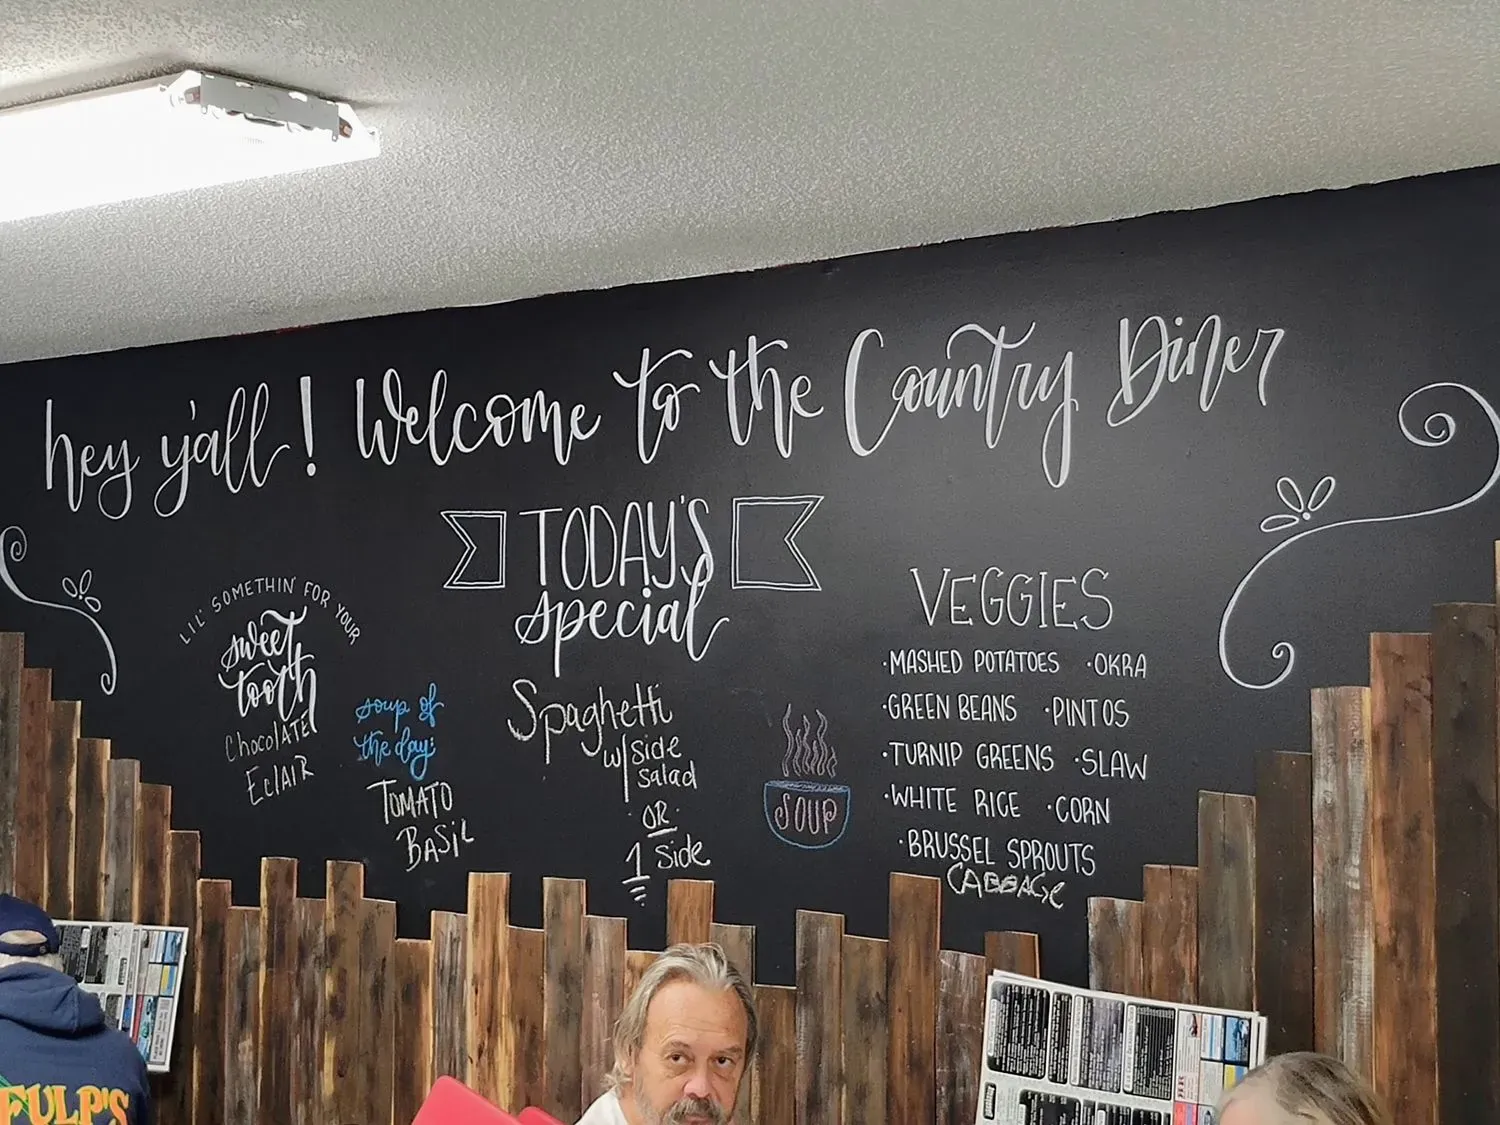 hey y'all! Welcome to the Country Diner
LIL' SOMETHIN' FOR YOUR
sweet
tooth
Chocolate
Eclair
soup of
the day:
TOMATO
BASIL
TODAY'S
special
Spaghetti
w/ side
salad
OR
1 side
SOUP
VEGGIES
·MASHED POTATOES ·OKRA
·GREEN BEANS ·PINTOS
·TURNIP GREENS ·SLAW
·WHITE RICE ·CORN
·BRUSSEL SPROUTS
CABBAGE
FULP'S